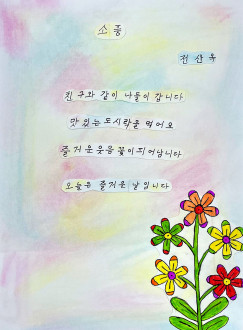 소풍
전산옥
친구와 같이 나들이 갑니다
맛있는 도시락을 먹어요
즐거운 웃음 꽃이 피어납니다
오늘은 즐거운 날입니다